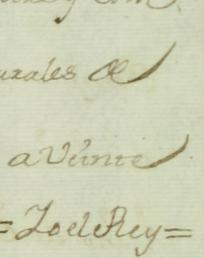 urales de
a Veinte
= Yo el Rey =